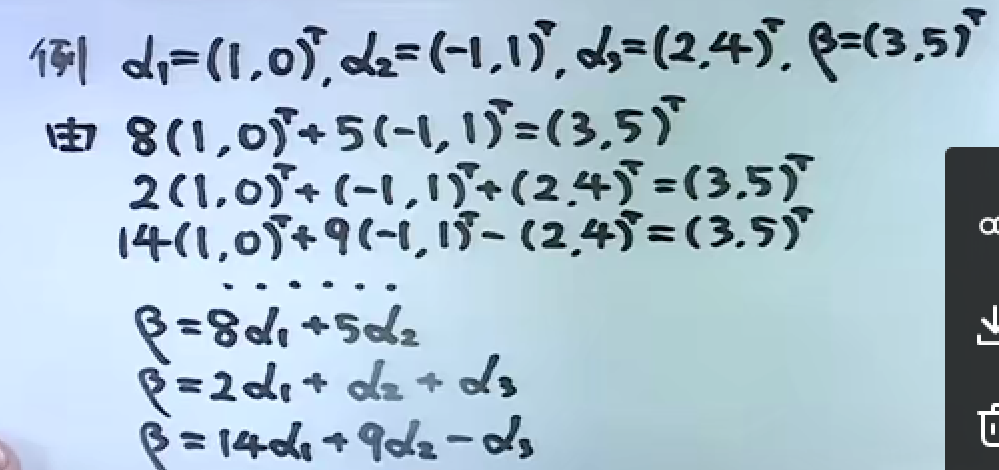 例 α₁=(1,0)ᵀ, α₂=(-1,1)ᵀ, α₃=(2,4)ᵀ. β=(3,5)ᵀ
由 8(1,0)ᵀ+5(-1,1)ᵀ=(3,5)ᵀ
2(1,0)ᵀ+(-1,1)ᵀ+(2,4)ᵀ=(3,5)ᵀ
14(1,0)ᵀ+9(-1,1)ᵀ-(2,4)ᵀ=(3,5)ᵀ
......
β=8α₁+5α₂
β=2α₁+α₂+α₃
β=14α₁+9α₂-α₃